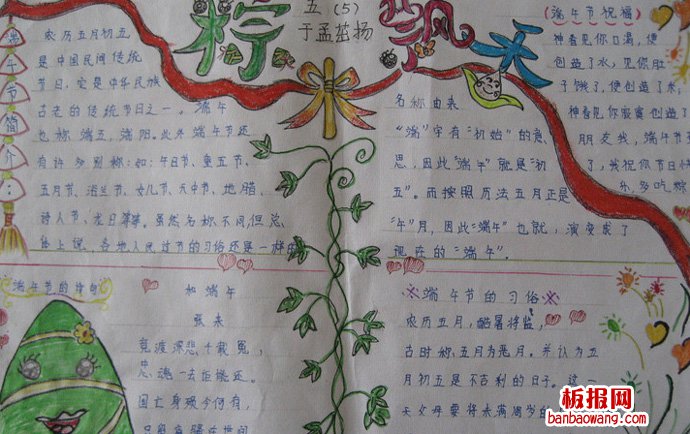 粽飘天
五(5)
于孟茁扬
端午节简介:
农历五月初五
是中国民间传统
节日,它是中华民族
古老的传统节日之一。端午
也称端五,端阳。此外端午节还
有许多别称:如:午日节、重五节、
五月节、浴兰节、女儿节、天中节、地腊、
诗人节、龙日等等。虽然名称不同,但总
体上说,各地人民过节的习俗还是一样
名称由来
"端"字有"初始"的意
思,因此"端午"就是"初
五"。而按照历法五月正是
"午"月,因此"端午"也就,演变成了
现在的"端午"。
(端午节祝福)
神看见你口渴,便
创造了水,见你肚
子饿了,便创造了米,
神看见你寂寞创造了
朋友线,端午节
了,我祝你节日
乐,多吃粽
端午节的诗句
和端午
张耒
竞渡深悲千载冤,
忠魂一去讵能还。
国亡身殒今何有,
只留离骚在世间
※端午节的习俗※
农历五月,酷暑将临,
古时称五月为恶月。并认为五
月初五是不吉利的日子。这一
天父母要将未满周岁的
板报网
banbaowang.com